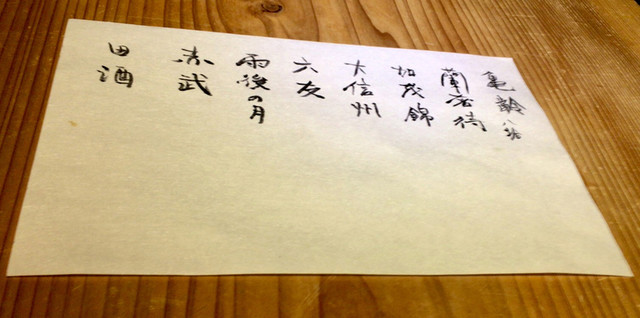 亀齢
蘭奢待
加茂錦
大信州
六友
雨後の月
赤武
田酒